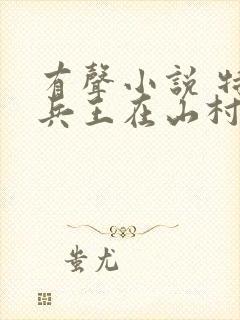 有聲小說 特
兵王在山村
蚩尤